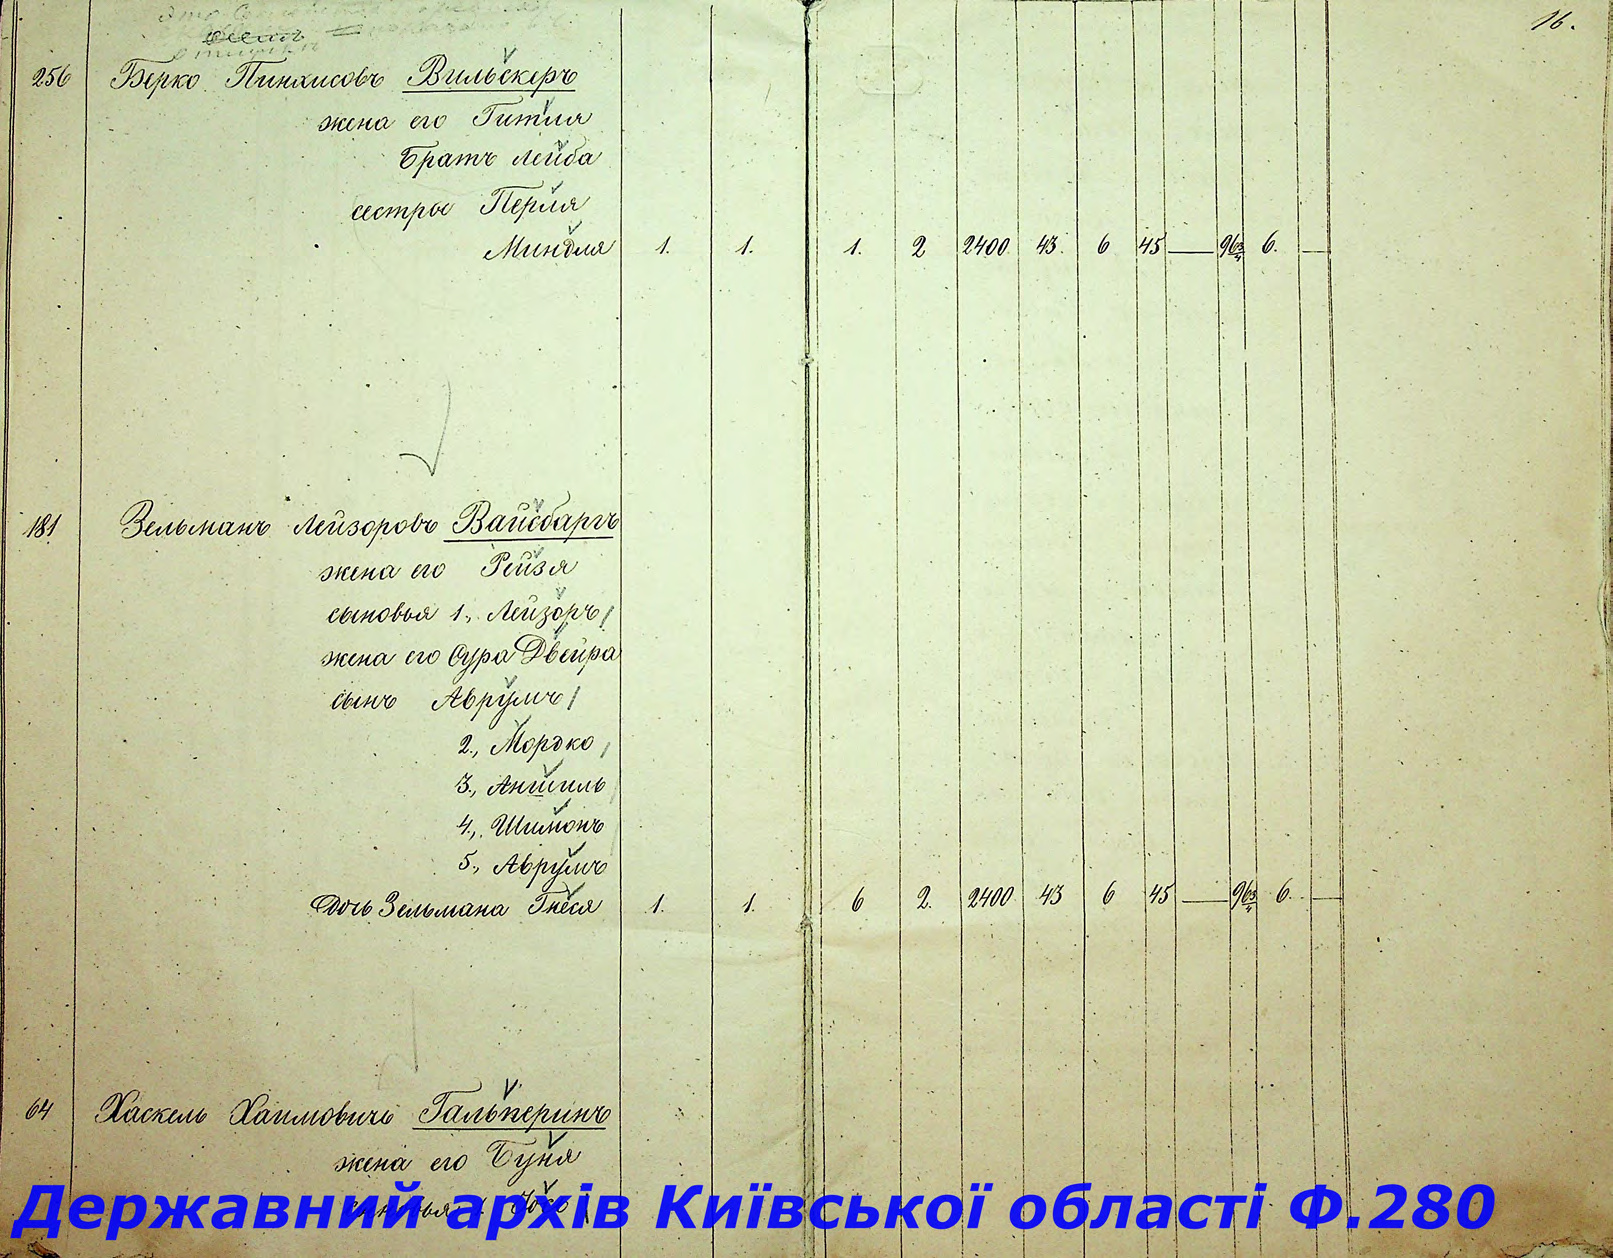 16.
256 Берко Пинхисовъ Вильскеръ
жена его Гитля
братъ Лейба
сестры Перля
Миндля 1. 1. 1. 2 2400 43. 6 45 — 96 3/4 6. —
181 Зельманъ Лейзоровъ Вайсбаргъ
жена его Рейзя
сыновья 1., Лейзоръ
жена его Сура Двейра
сынъ Аврумъ
2., Мордко
3., Аншиль
4., Шимонъ
5., Аврумъ
дочь Зельмана Гнеся 1. 1. 6 2. 2400 43 6 45 — 96 3/4 6. —
64 Хаскель Хаимовичъ Гальперинъ
жена его Буня
сыновья 1
Державний архів Київської області Ф.280